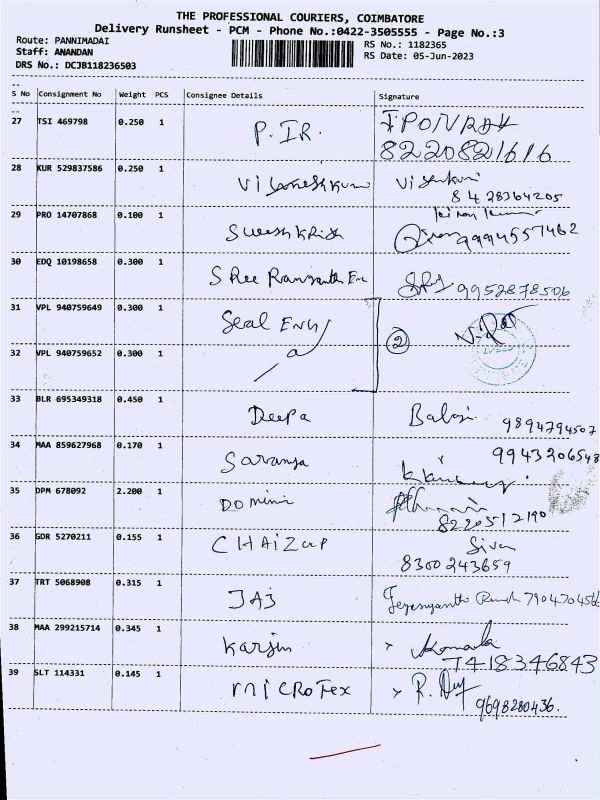 THE PROFESSIONAL COURIERS, COIMBATORE
Delivery Runsheet - PCM - Phone No.:0422-3505555 - Page No.:3
Route: PANNIMADAI
Staff: ANANDAN
DRS No.: DCJB118236503
RS No.: 1182365
RS Date: 05-Jun-2023
S No Consignment No Weight PCS Consignee Details Signature
27 TSI 469798 0.250 1 P. IR.
8220821616
28 KUR 529837586 0.250 1
8428364205
29 PRO 14707868 0.100 1
9994557462
30 EDQ 10198658 0.300 1 SRee
9952878506
31 VPL 940759649 0.300 1 Seal ENG
2
32 VPL 940759652 0.300 1
33 BLR 695349318 0.450 1 Deepa Balaji 9894794507
34 MAA 859627968 0.170 1 Saranya 9943206548
35 DPM 678092 2.200 1 DOmini
36 GDR 5270211 0.155 1 Siva
8300243659
37 TRT 5068908 0.315 1 JAJ 7904704566
38 MAA 299215714 0.345 1 Komala
7418346843
39 SLT 114331 0.145 1 mICROTex R.
9698280436.